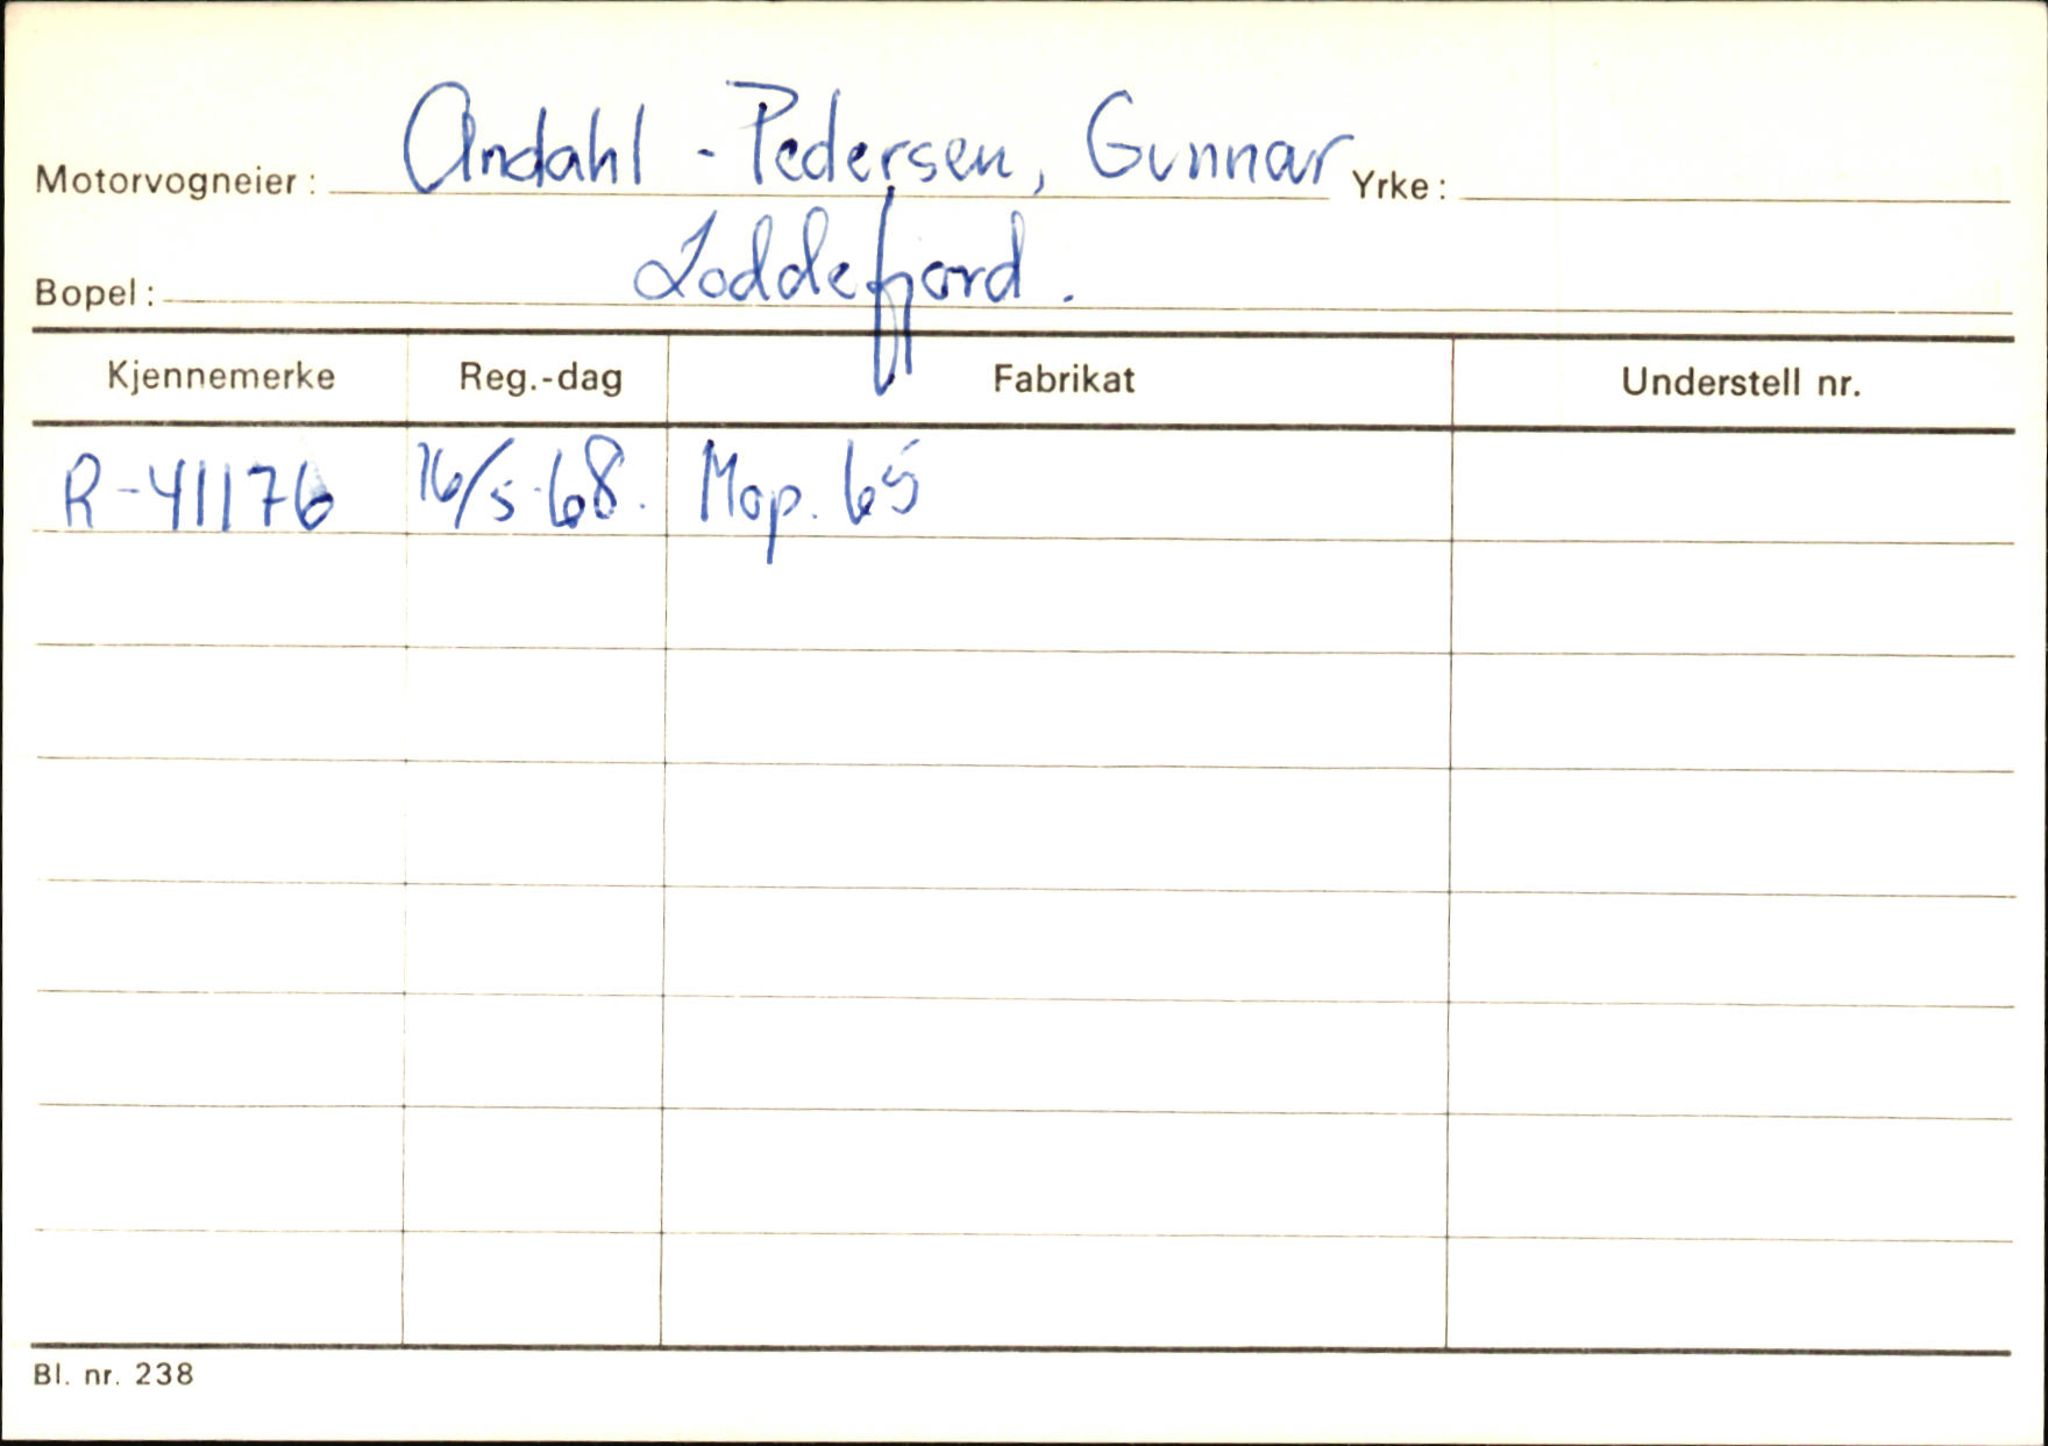 Motorvogneier: Andahl-Pedersen, Gunnar Yrke:
Bopel: Loddefjord.
Kjennemerke Reg.-dag Fabrikat Understell nr.
R-41176 16/5-68. Mop. 65
Bl. nr. 238